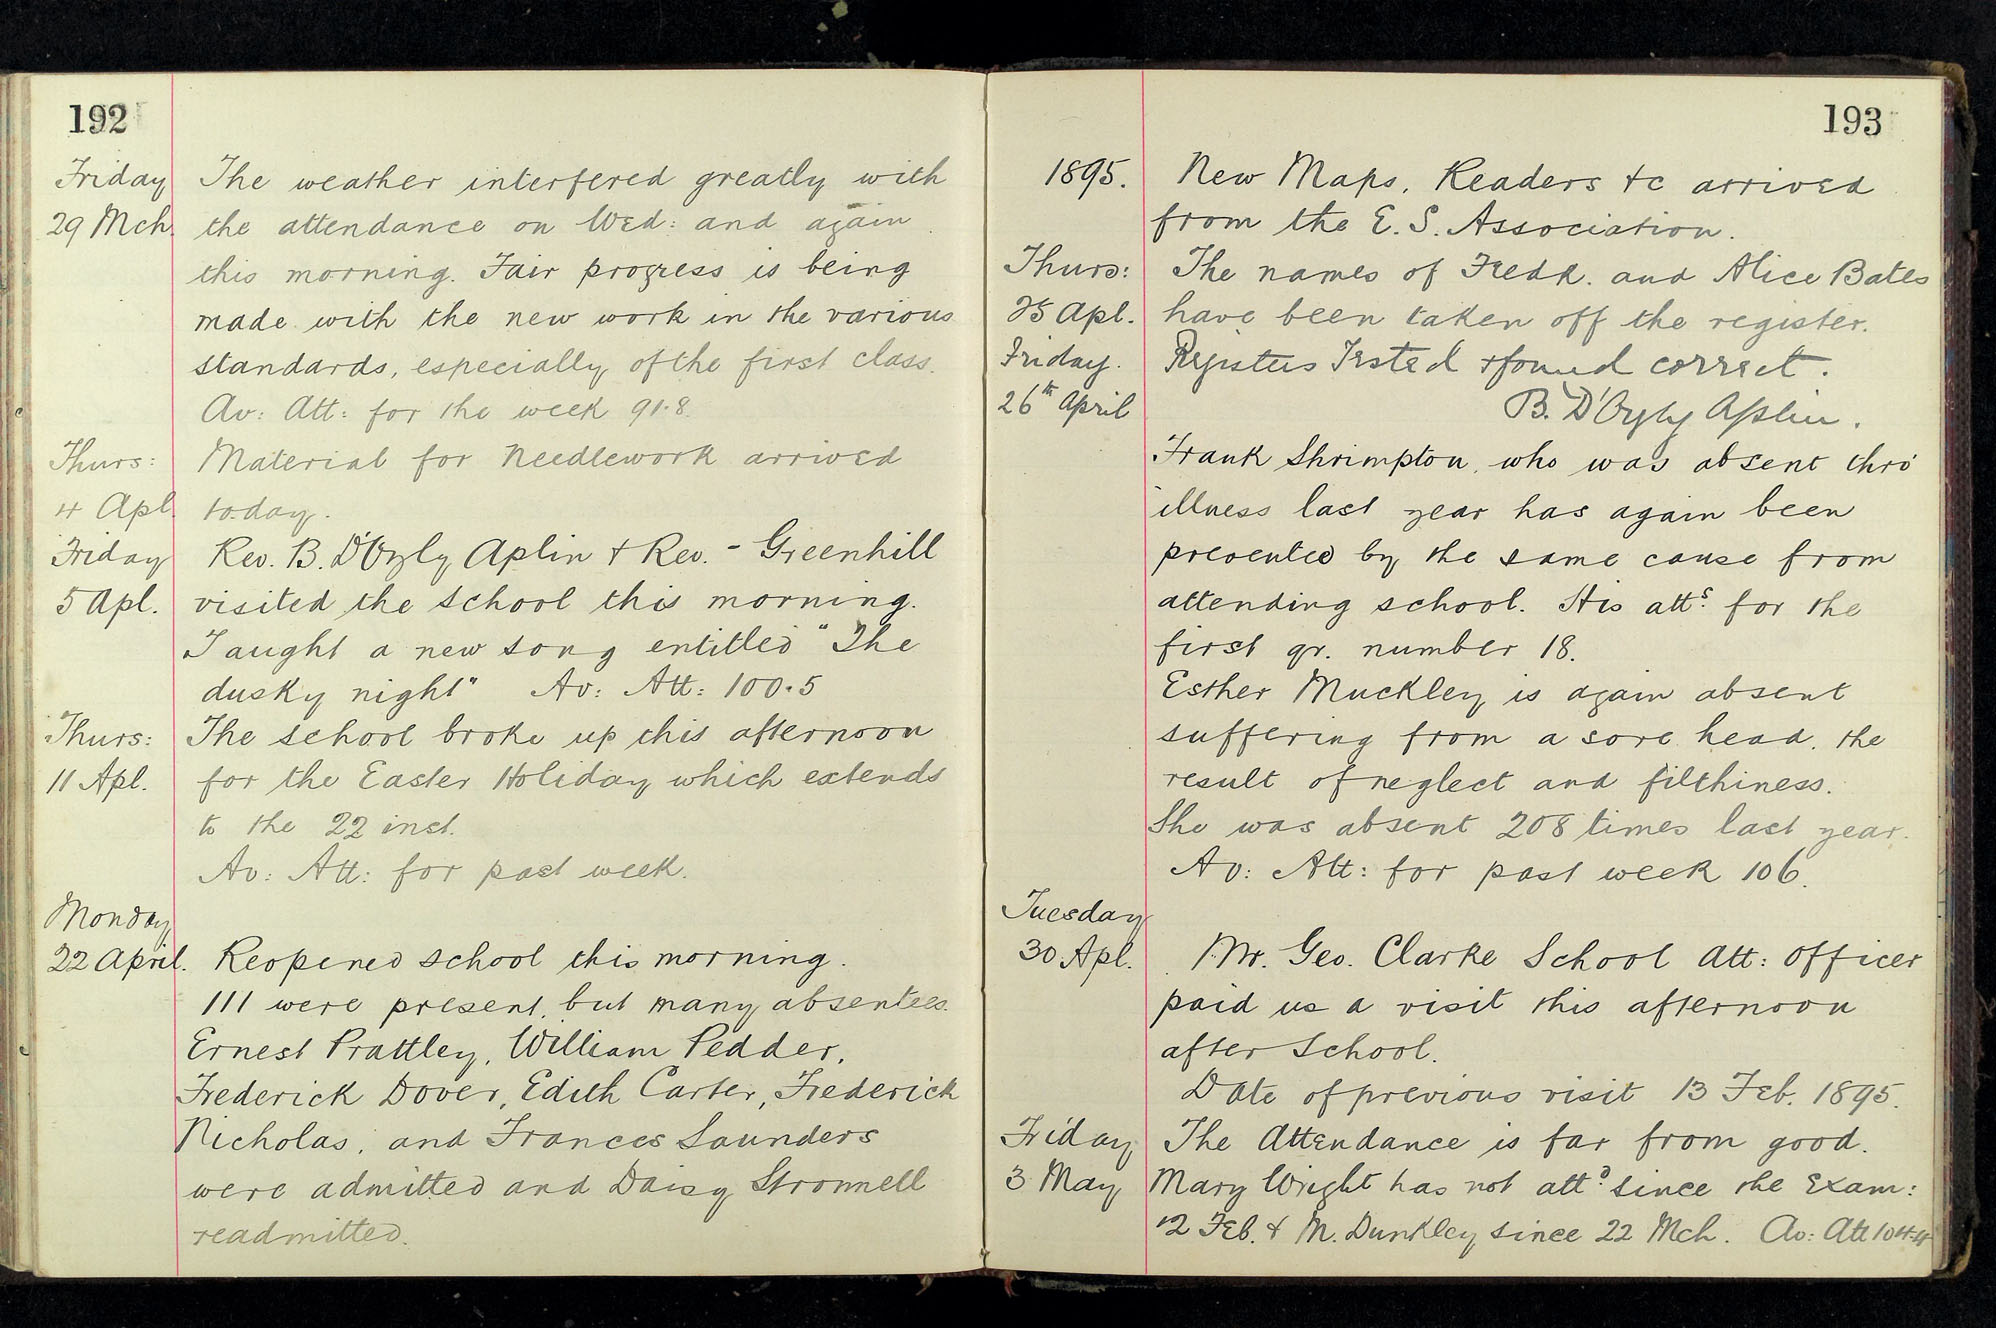 192
Friday The weather interfered greatly with
29 Mch. the attendance on Wed: and again
this morning. Fair progress is being
made with the new work in the various
standards, especially of the first class.
Av: Att: for the week 91.8.
Thurs: Material for Needlework arrived
4 Apl. to.day.
Friday Rev. B. D'Oyly Aplin & Rev. - Greenhill
5 Apl. visited the school this morning.
Taught a new song entitled "The
dusky night" Av: Att: 100.5
Thurs: The school broke up this afternoon
11 Apl. for the Easter Holiday which extends
to the 22 inst.
Av: Att: for past week.
Monday
22 April. Reopened school this morning.
111 were present, but many absentees.
Ernest Prattley, William Pedder,
Frederick Dover, Edith Carter, Frederick
Nicholas, and Frances Saunders
were admitted and Daisy Stronnell
readmitted.
193
1895. New Maps, Readers &c arrived
from the E. S. Association.
Thurs: The names of Fredk. and Alice Bates
25 Apl. have been taken off the register.
Friday. Registers Tested & found correct.
26th April B. D'Oyly Aplin.
Frank Shrimpton, who was absent thro'
illness last year has again been
prevented by the same cause from
attending school. His atts. for the
first qr. number 18.
Esther Muckley is again absent
suffering from a sore head, the
result of neglect and filthiness.
She was absent 208 times last year.
Av: Att: for past week 106.
Tuesday
30 Apl. Mr. Geo. Clarke School Att: Officer
paid us a visit this afternoon
after School.
Date of previous visit 13 Feb. 1895.
Friday The Attendance is far from good.
3 May Mary Wright has not attd. since the Exam:
12 Feb. & M. Dunkley since 22 Mch. Av: Att 104.4